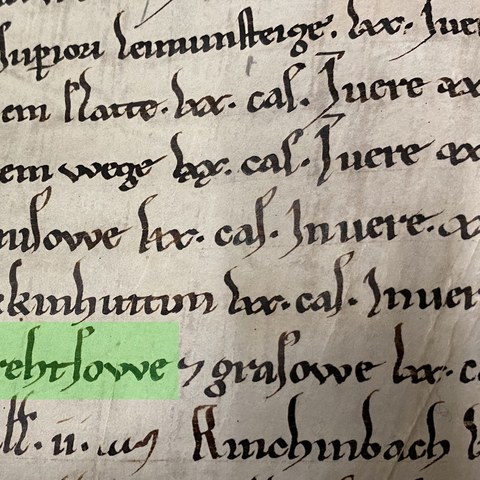 supiori leimunsteige. lxx. Juer
em slatte. lxx. cas. Juere xx
em wege lxx. cas. Juere xx
nisowe lxx. cas. Jnuere. x
ekinhuttun lxx. cas. Jnuer
rehtsowe ⁊ grasowe lxx. c
ll. ii. Rinchinbach l